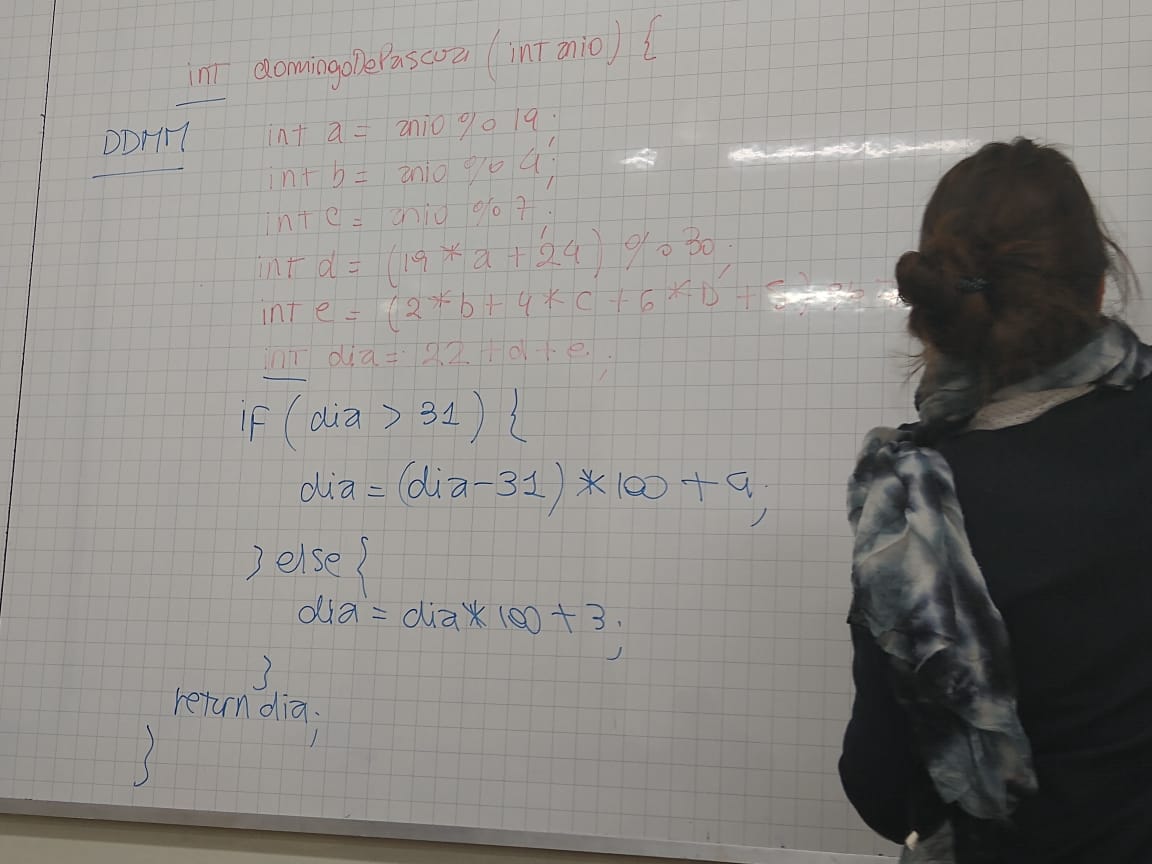 int domingoDePascua (int anio) {
DDMM
int a = anio % 19;
int b = anio % 4;
int c = anio % 7;
int d = (19 * a + 24) % 30;
int e = (2*b + 4*c + 6*D + 5) %
int dia = 22 + d + e;
if (dia > 31) {
dia = (dia-31) * 100 + 4;
} else {
dia = dia * 100 + 3;
}
return dia;
}